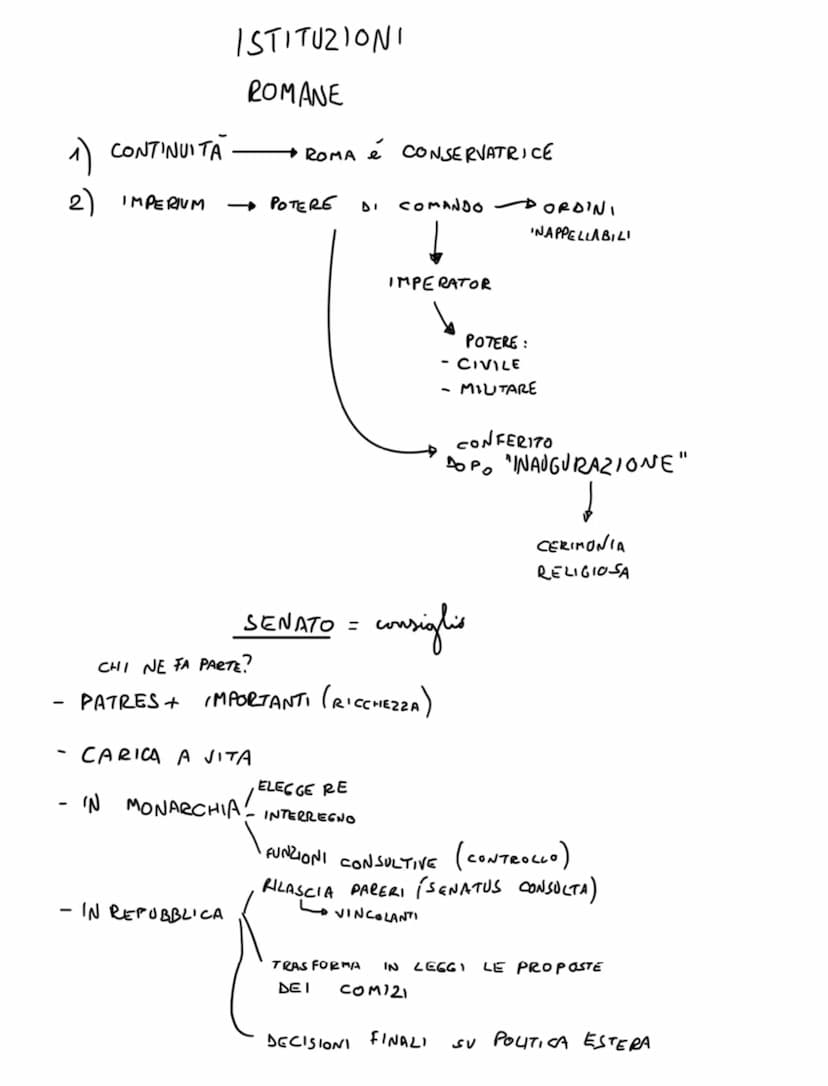 ISTITUZIONI
ROMANE
1) CONTINUITÀ → ROMA É CONSERVATRICE
2) IMPERIUM → POTERE DI COMANDO → ORDINI
INAPPELLABILI
IMPERATOR
POTERE:
- CIVILE
- MILITARE
CONFERITO
DOPO "INAUGURAZIONE"
CERIMONIA
RELIGIOSA
SENATO = consiglio
CHI NE FA PARTE?
- PATRES + IMPORTANTI (RICCHEZZA)
- CARICA A VITA
ELEGGE RE
- IN MONARCHIA - INTERREGNO
FUNZIONI CONSULTIVE (CONTROLLO)
RILASCIA PARERI (SENATUS CONSULTA)
- IN REPUBBLICA → VINCOLANTI
TRASFORMA IN LEGGI LE PROPOSTE
DEI COMIZI
DECISIONI FINALI SU POLITICA ESTERA